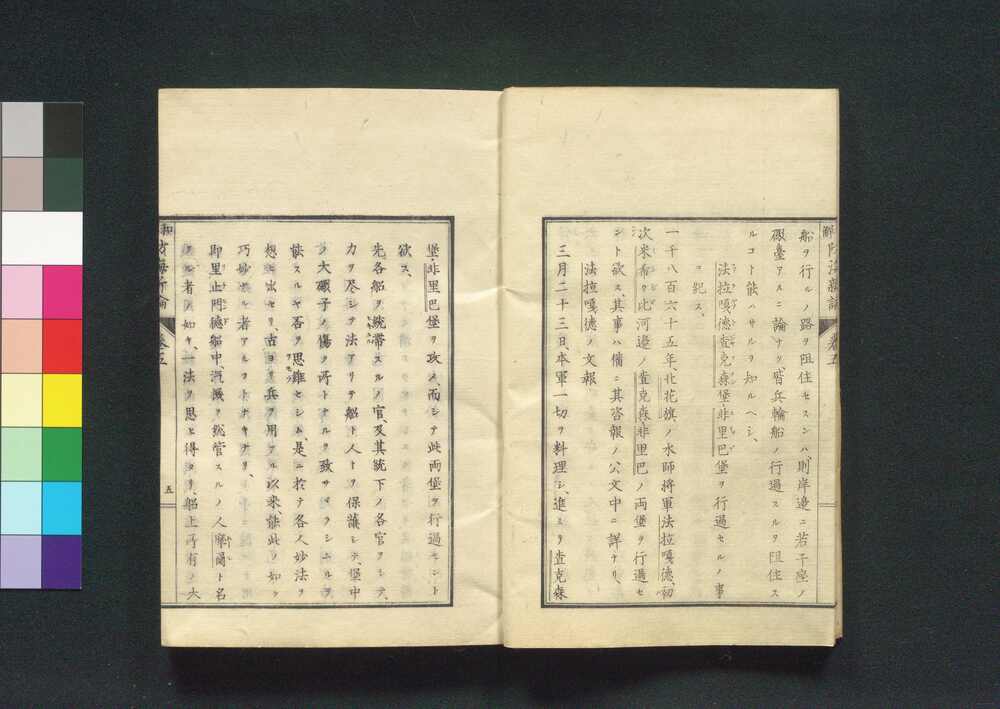 船ヲ行ルノ路ヲ阻住セスンハ、則岸邉ニ若干座ノ
礮臺アルニ論ナク、皆兵輪船ノ行過スルヲ阻住ス
ルコト能ハサルヲ知ルヘシ、
法拉嘎德査克森堡非里巴堡ヲ行過セルノ事
ヲ記ス、
一千八百六十五年、北花旗ノ水師將軍法拉嘎德、初
次米希ク比河邉ノ査克森、非里巴ノ両堡ヲ行過セ
ント欲ス、其事ハ備ニ其咨報ノ公文中ニ詳ナリ、
法拉嘎德ノ文報
三月二十三日、本軍一切ヲ料理シ、進ミヲ査克森
堡、非里巴堡ヲ攻メ、而シテ此両堡ヲ行過セント
欲ス、
先各船ヲ統帶スルノ官、及其統下ノ各官ヲシテ、
力ヲ尽シテ法アリテ船ト人トヲ保護シテ、堡中
ノ大礮子ノ傷ク所トナルヲ致サヾラシムルヲ
能スルヤ否ヲ思維セシム、是ニ於テ各人妙法ヲ
想ヒ出セリ、古ヨリ兵ヲ用フル以来、能此ノ如ク
巧妙ナル者アルヲキカナリ、
即里止門德船中、汽機ヲ総管スルノ人摩爾ト名
クル者ノ如キ、一法ヲ思ヒ得タリ、船上所有ノ大
巻五
五